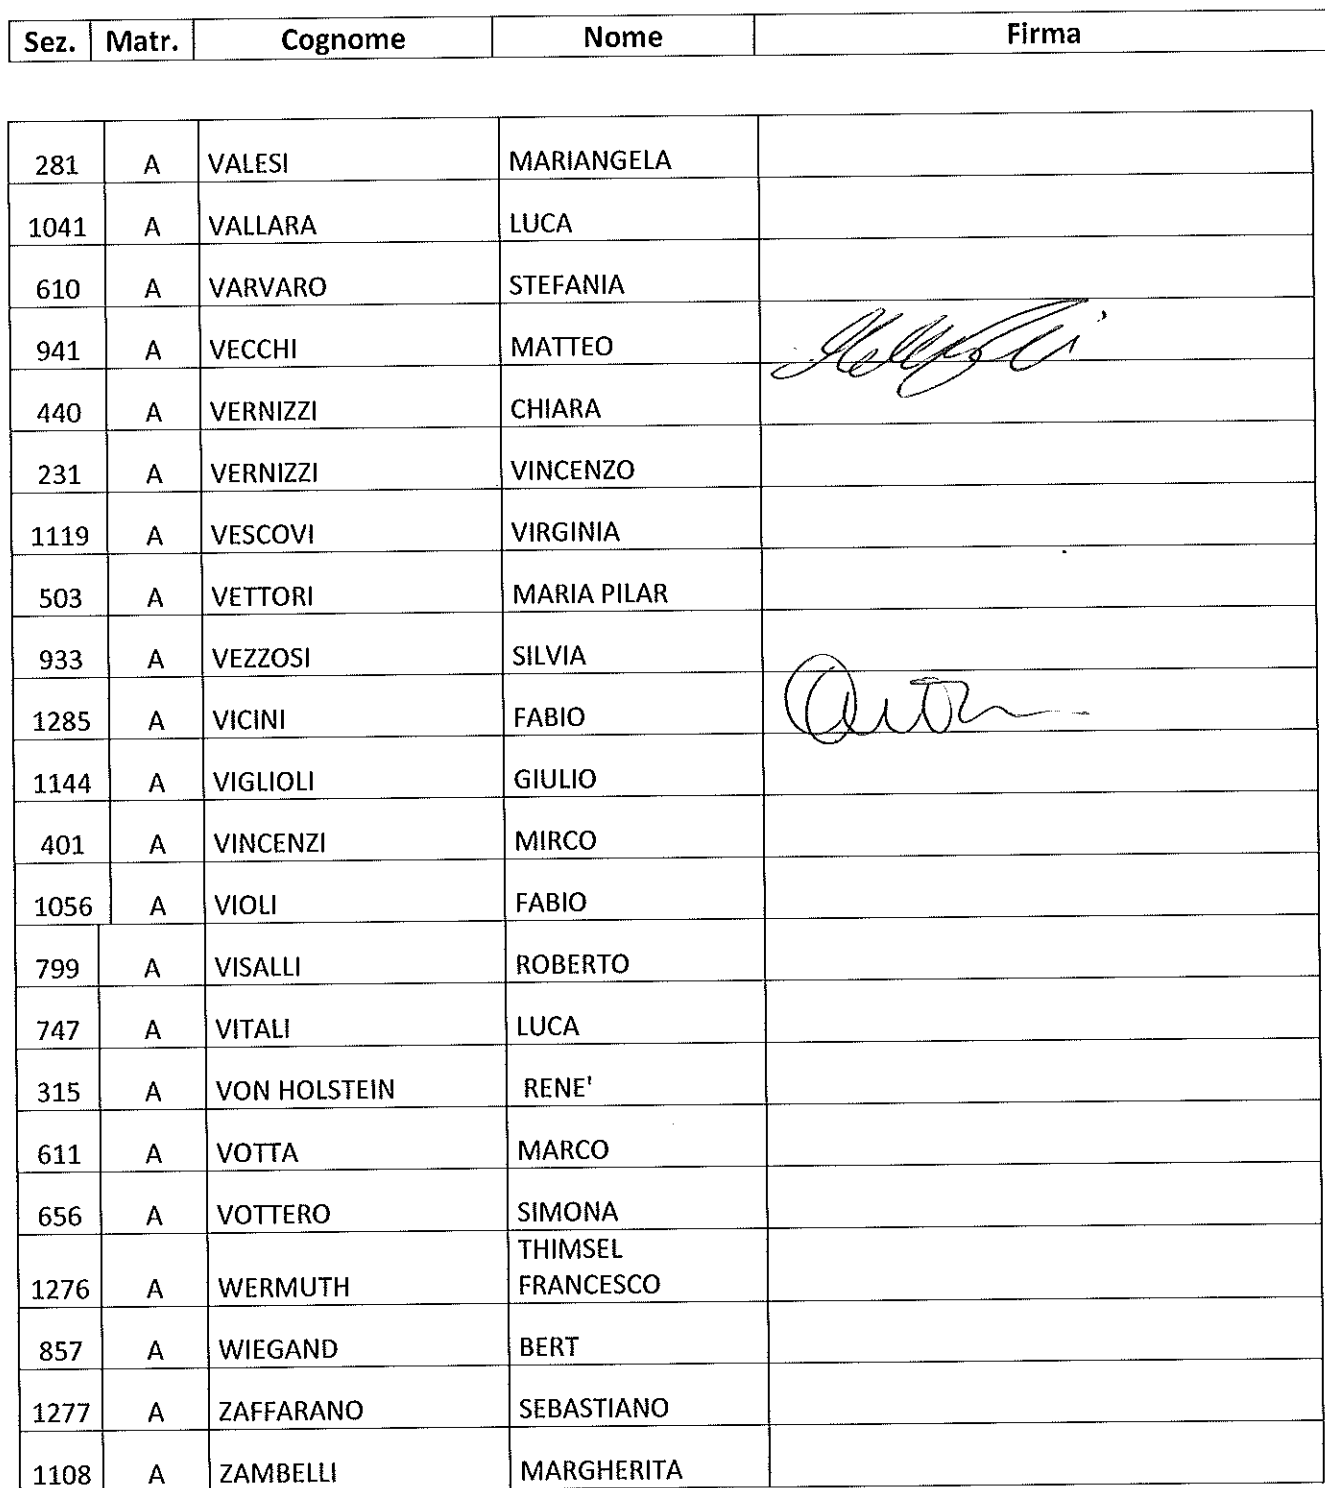 Sez. Matr. Cognome Nome Firma
281 A VALESI MARIANGELA
1041 A VALLARA LUCA
610 A VARVARO STEFANIA
941 A VECCHI MATTEO
440 A VERNIZZI CHIARA
231 A VERNIZZI VINCENZO
1119 A VESCOVI VIRGINIA
503 A VETTORI MARIA PILAR
933 A VEZZOSI SILVIA
1285 A VICINI FABIO
1144 A VIGLIOLI GIULIO
401 A VINCENZI MIRCO
1056 A VIOLI FABIO
799 A VISALLI ROBERTO
747 A VITALI LUCA
315 A VON HOLSTEIN RENE'
611 A VOTTA MARCO
656 A VOTTERO SIMONA
THIMSEL
1276 A WERMUTH FRANCESCO
857 A WIEGAND BERT
1277 A ZAFFARANO SEBASTIANO
1108 A ZAMBELLI MARGHERITA